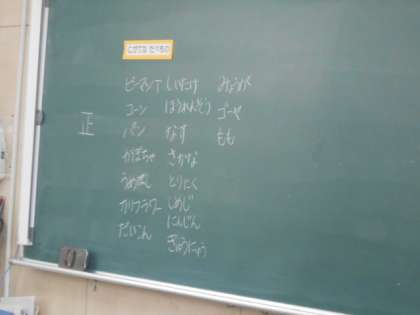 にがてな たべもの
正
ピーマン下
コーン
パン
かぼちゃ
うめぼし
カリフラワー
だいこん
しいたけ
ほうれんそう
なす
さかな
とりにく
しめじ
にんじん
ぎゅうにゅう
みょうが
ゴーヤ
もも